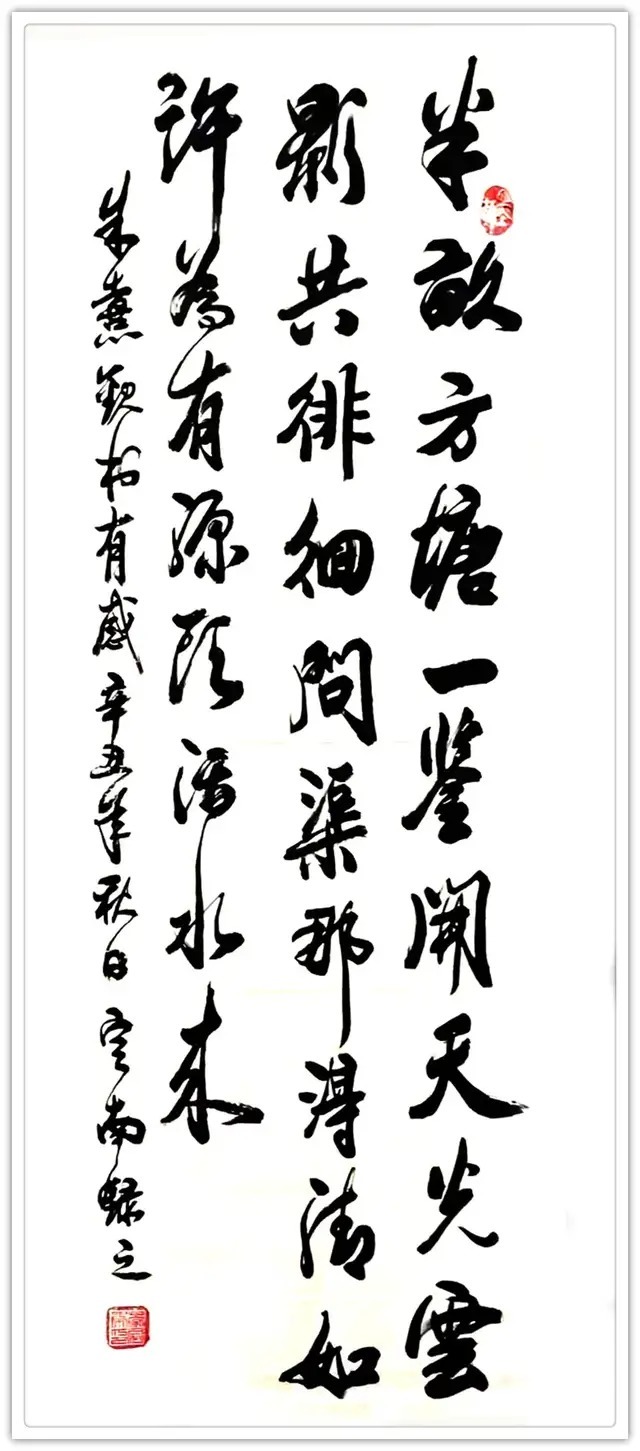 半畝方塘一鑒開天光雲
影共徘徊問渠那得清如
許為有源頭活水來
朱熹觀書有感辛丑年秋日南録之